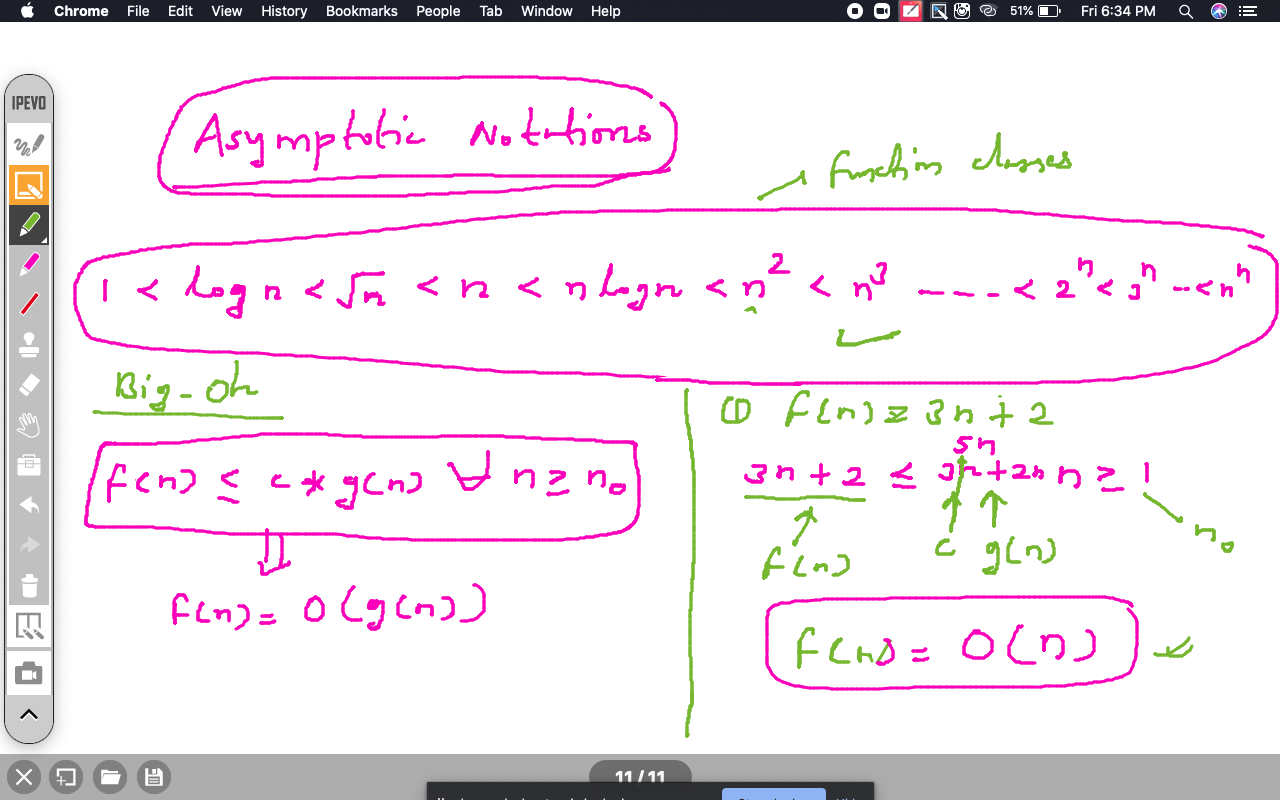 Chrome File Edit View History Bookmarks People Tab Window Help 51% Fri 6:34 PM
IPEVO
Asymptotic Notations
function classes
1 < log n < √n < n < n log n < n² < n³ ---- < 2ⁿ < 3ⁿ -- < nⁿ
Big-Oh
f(n) ≤ c * g(n) ∀ n ≥ n₀
⇓
f(n) = O(g(n))
① f(n) = 3n + 2
5n
3n + 2 ≤ 3n + 2n n ≥ 1
f(n) c g(n) n₀
f(n) = O(n)
11 / 11